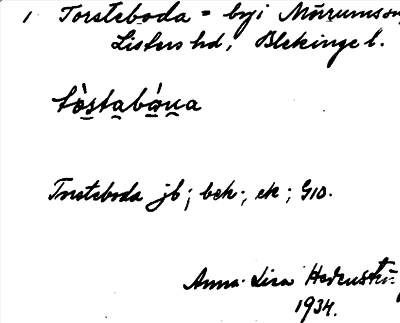 1 Torsteboda = by i Mörrums sn,
Listers hd, Blekinge l.
Torsteboda jb; bek.; ek; GIO.
Anna-Lisa Hedenstr
1934.